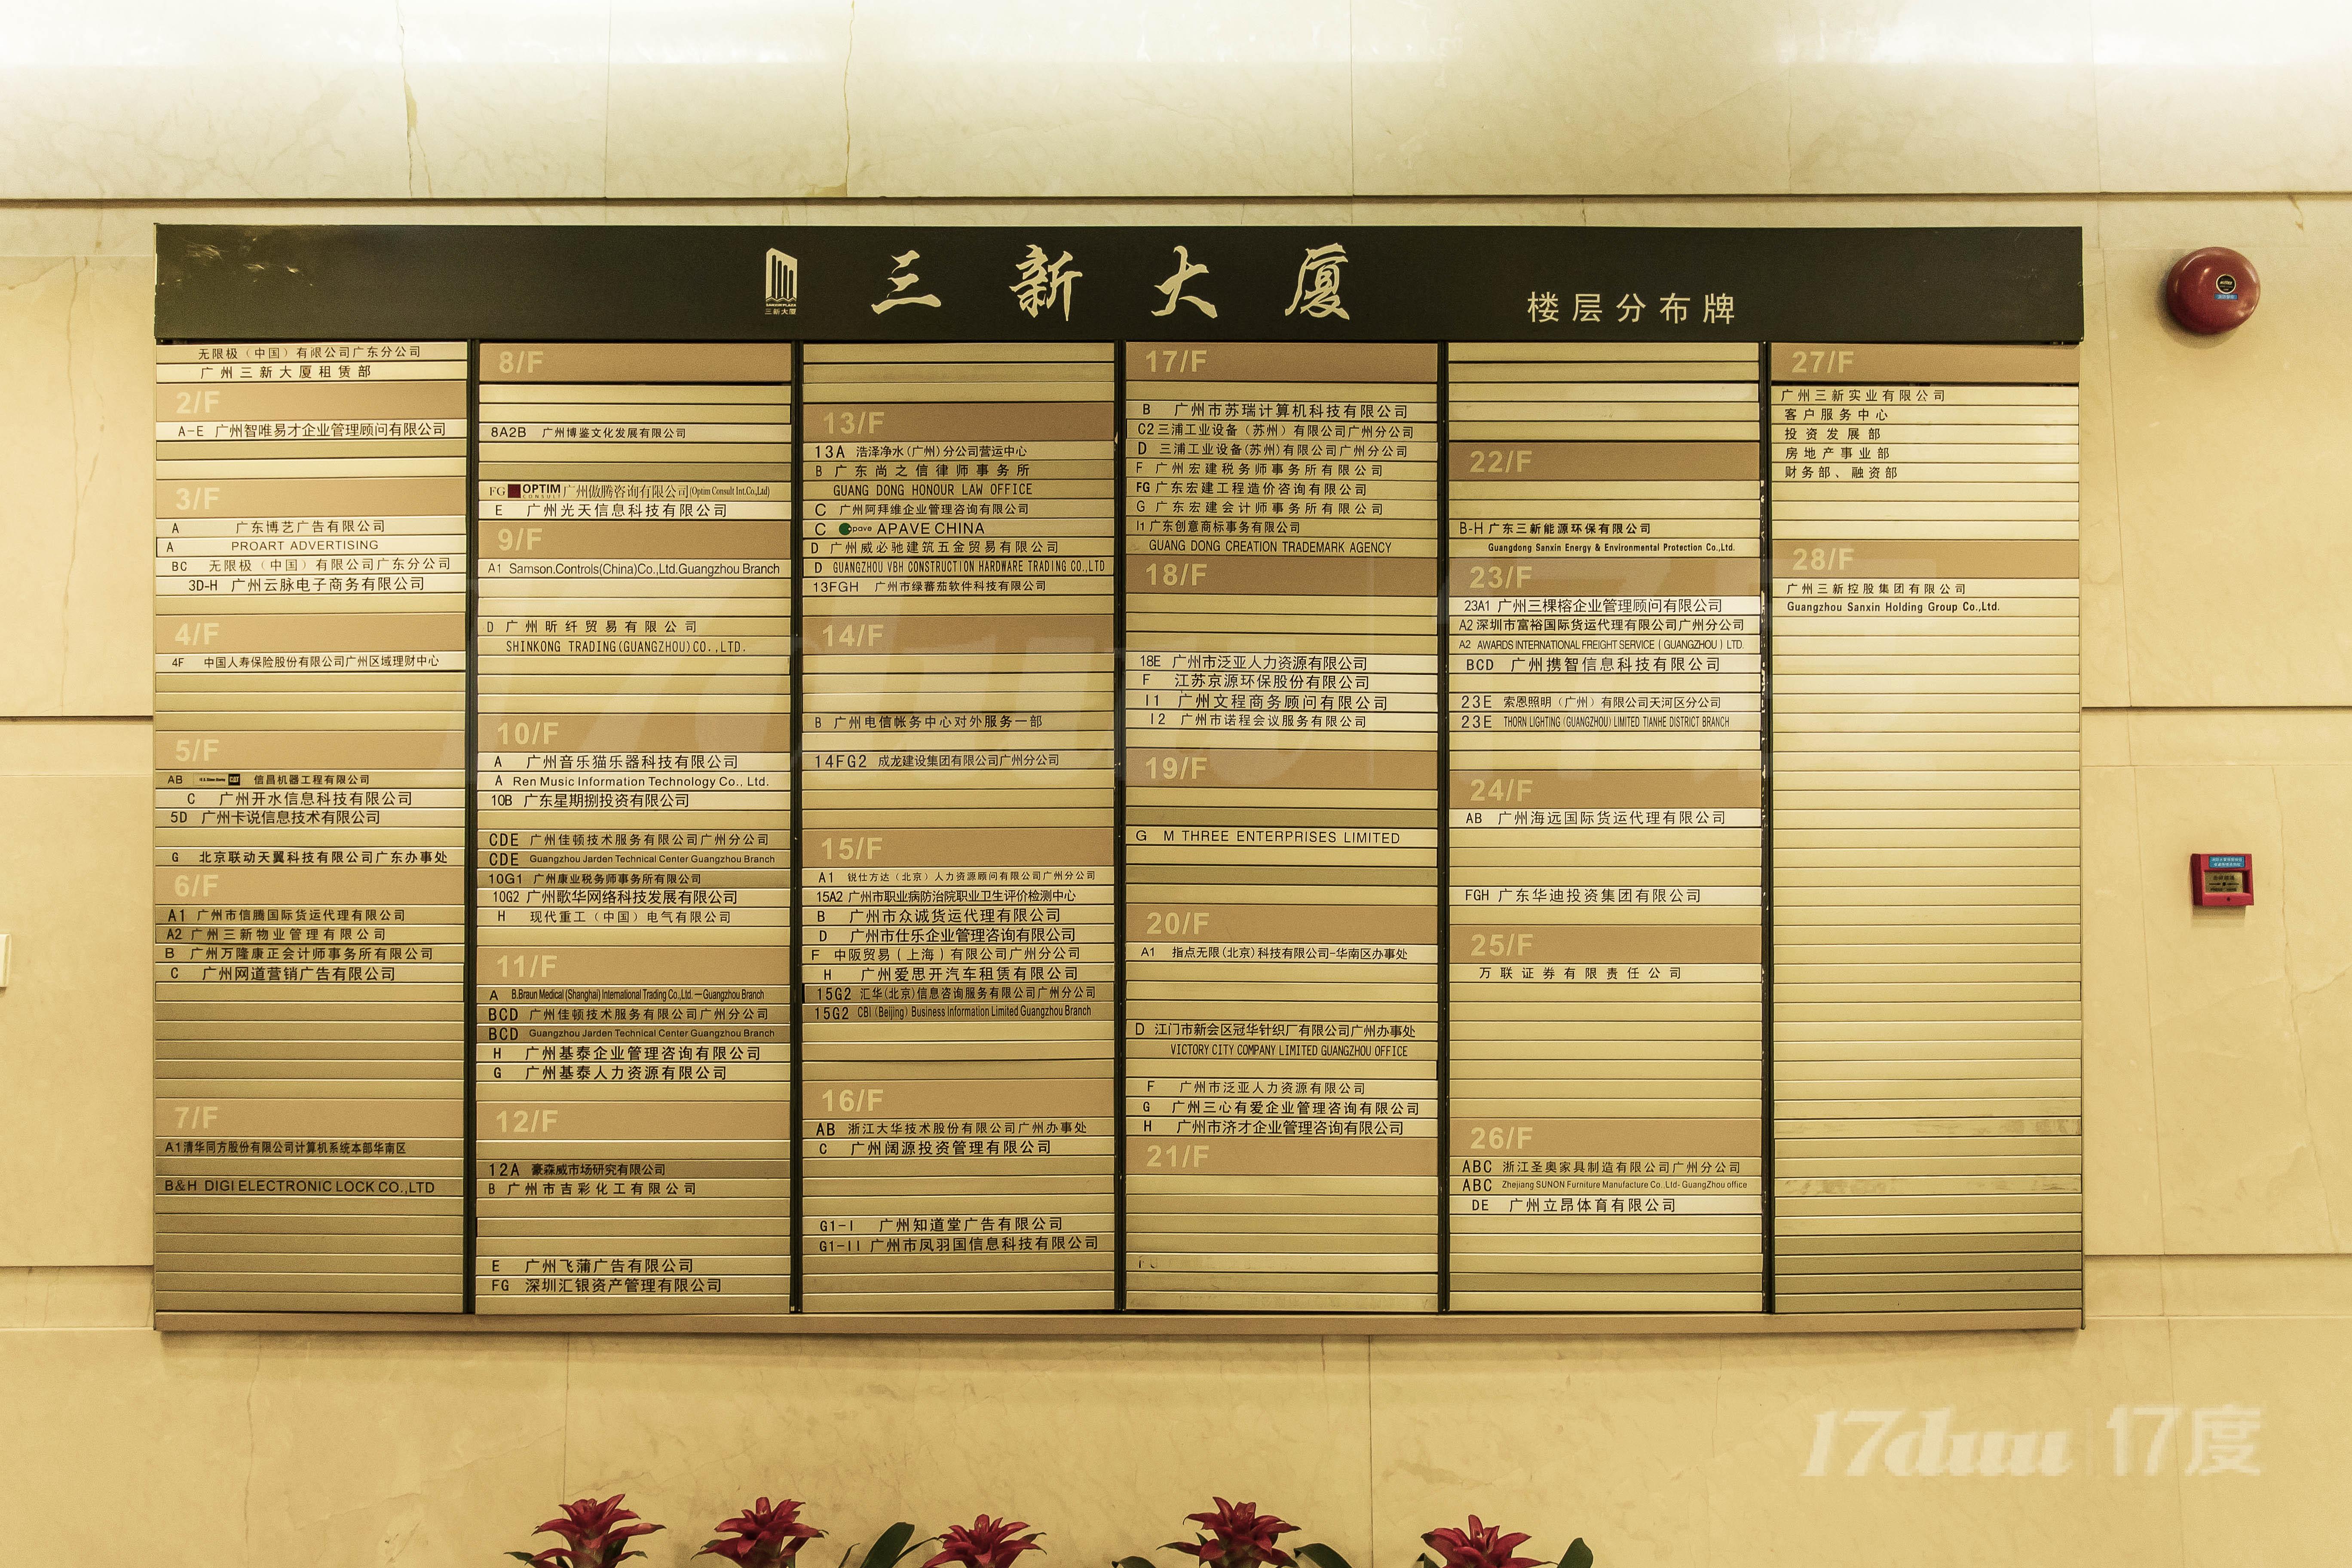 三新大厦
三新大厦
楼层分布牌
无限极（中国）有限公司广东分公司
广州三新大厦租赁部
2/F
A-E 广州智唯易才企业管理顾问有限公司
3/F
A 广东博艺广告有限公司
A PROART ADVERTISING
BC 无限极（中国）有限公司广东分公司
3D-H 广州云脉电子商务有限公司
4/F
4F 中国人寿保险股份有限公司广州区域理财中心
5/F
AB CAT 信昌机器工程有限公司
C 广州开水信息科技有限公司
5D 广州卡说信息技术有限公司
G 北京联动天翼科技有限公司广东办事处
6/F
A1 广州市信腾国际货运代理有限公司
A2 广州三新物业管理有限公司
B 广州万隆康正会计师事务所有限公司
C 广州网道营销广告有限公司
7/F
A1清华同方股份有限公司计算机系统本部华南区
B&H DIGI ELECTRONIC LOCK CO.,LTD
8/F
8A2B 广州博鉴文化发展有限公司
FG OPTIM CONSULT 广州傲腾咨询有限公司(Optim Consult Int.Co.,Ltd)
E 广州光天信息科技有限公司
9/F
A1 Samson.Controls(China)Co.,Ltd.Guangzhou Branch
D 广州昕纤贸易有限公司
SHINKONG TRADING(GUANGZHOU)CO.,LTD.
10/F
A 广州音乐猫乐器科技有限公司
A Ren Music Information Technology Co., Ltd.
10B 广东星期捌投资有限公司
CDE 广州佳顿技术服务有限公司广州分公司
CDE Guangzhou Jarden Technical Center Guangzhou Branch
10G1 广州康业税务师事务所有限公司
10G2 广州歌华网络科技发展有限公司
H 现代重工（中国）电气有限公司
11/F
A B.Braun Medical (Shanghai) International Trading Co.,Ltd. —Guangzhou Branch
BCD 广州佳顿技术服务有限公司广州分公司
BCD Guangzhou Jarden Technical Center Guangzhou Branch
H 广州基泰企业管理咨询有限公司
G 广州基泰人力资源有限公司
12/F
12A 豪森威市场研究有限公司
B 广州市吉彩化工有限公司
E 广州飞蒲广告有限公司
FG 深圳汇银资产管理有限公司
13/F
13A 浩泽净水(广州)分公司营运中心
B 广东尚之信律师事务所
GUANG DONG HONOUR LAW OFFICE
C 广州阿拜维企业管理咨询有限公司
C apave APAVE CHINA
D 广州威必驰建筑五金贸易有限公司
D GUANGZHOU VBH CONSTRUCTION HARDWARE TRADING CO.,LTD
13FGH 广州市绿蕃茄软件科技有限公司
14/F
B 广州电信帐务中心对外服务一部
14FG2 成龙建设集团有限公司广州分公司
15/F
A1 锐仕方达（北京）人力资源顾问有限公司广州分公司
15A2 广州市职业病防治院职业卫生评价检测中心
B 广州市众诚货运代理有限公司
D 广州市仕乐企业管理咨询有限公司
F 中阪贸易（上海）有限公司广州分公司
H 广州爱思开汽车租赁有限公司
15G2 汇华(北京)信息咨询服务有限公司广州分公司
15G2 CBI (Beijing) Business Information Limited Guangzhou Branch
16/F
AB 浙江大华技术股份有限公司广州办事处
C 广州阔源投资管理有限公司
G1-I 广州知道堂广告有限公司
G1-II 广州市凤羽国信息科技有限公司
17/F
B 广州市苏瑞计算机科技有限公司
C2 三浦工业设备（苏州）有限公司广州分公司
D 三浦工业设备(苏州)有限公司广州分公司
F 广州宏建税务师事务所有限公司
FG 广东宏建工程造价咨询有限公司
G 广东宏建会计师事务所有限公司
I1 广东创意商标事务有限公司
GUANG DONG CREATION TRADEMARK AGENCY
18/F
18E 广州市泛亚人力资源有限公司
F 江苏京源环保股份有限公司
I1 广州文程商务顾问有限公司
I2 广州市诺程会议服务有限公司
19/F
G M THREE ENTERPRISES LIMITED
20/F
A1 指点无限(北京)科技有限公司-华南区办事处
D 江门市新会区冠华针织厂有限公司广州办事处
VICTORY CITY COMPANY LIMITED GUANGZHOU OFFICE
F 广州市泛亚人力资源有限公司
G 广州三心有爱企业管理咨询有限公司
H 广州市济才企业管理咨询有限公司
21/F
22/F
B-H 广东三新能源环保有限公司
Guangdong Sanxin Energy & Environmental Protection Co.,Ltd.
23/F
23A1 广州三棵榕企业管理顾问有限公司
A2 深圳市富裕国际货运代理有限公司广州分公司
A2 AWARDS INTERNATIONAL FREIGHT SERVICE ( GUANGZHOU ) LTD.
BCD 广州携智信息科技有限公司
23E 索恩照明（广州）有限公司天河区分公司
23E THORN LIGHTING (GUANGZHOU) LIMITED TIANHE DISTRICT BRANCH
24/F
AB 广州海远国际货运代理有限公司
FGH 广东华迪投资集团有限公司
25/F
万联证券有限责任公司
26/F
ABC 浙江圣奥家具制造有限公司广州分公司
ABC Zhejiang SUNON Furniture Manufacture Co.,Ltd- GuangZhou office
DE 广州立昂体育有限公司
27/F
广州三新实业有限公司
客户服务中心
投资发展部
房地产事业部
财务部、融资部
28/F
广州三新控股集团有限公司
Guangzhou Sanxin Holding Group Co.,Ltd.
17duu 17度